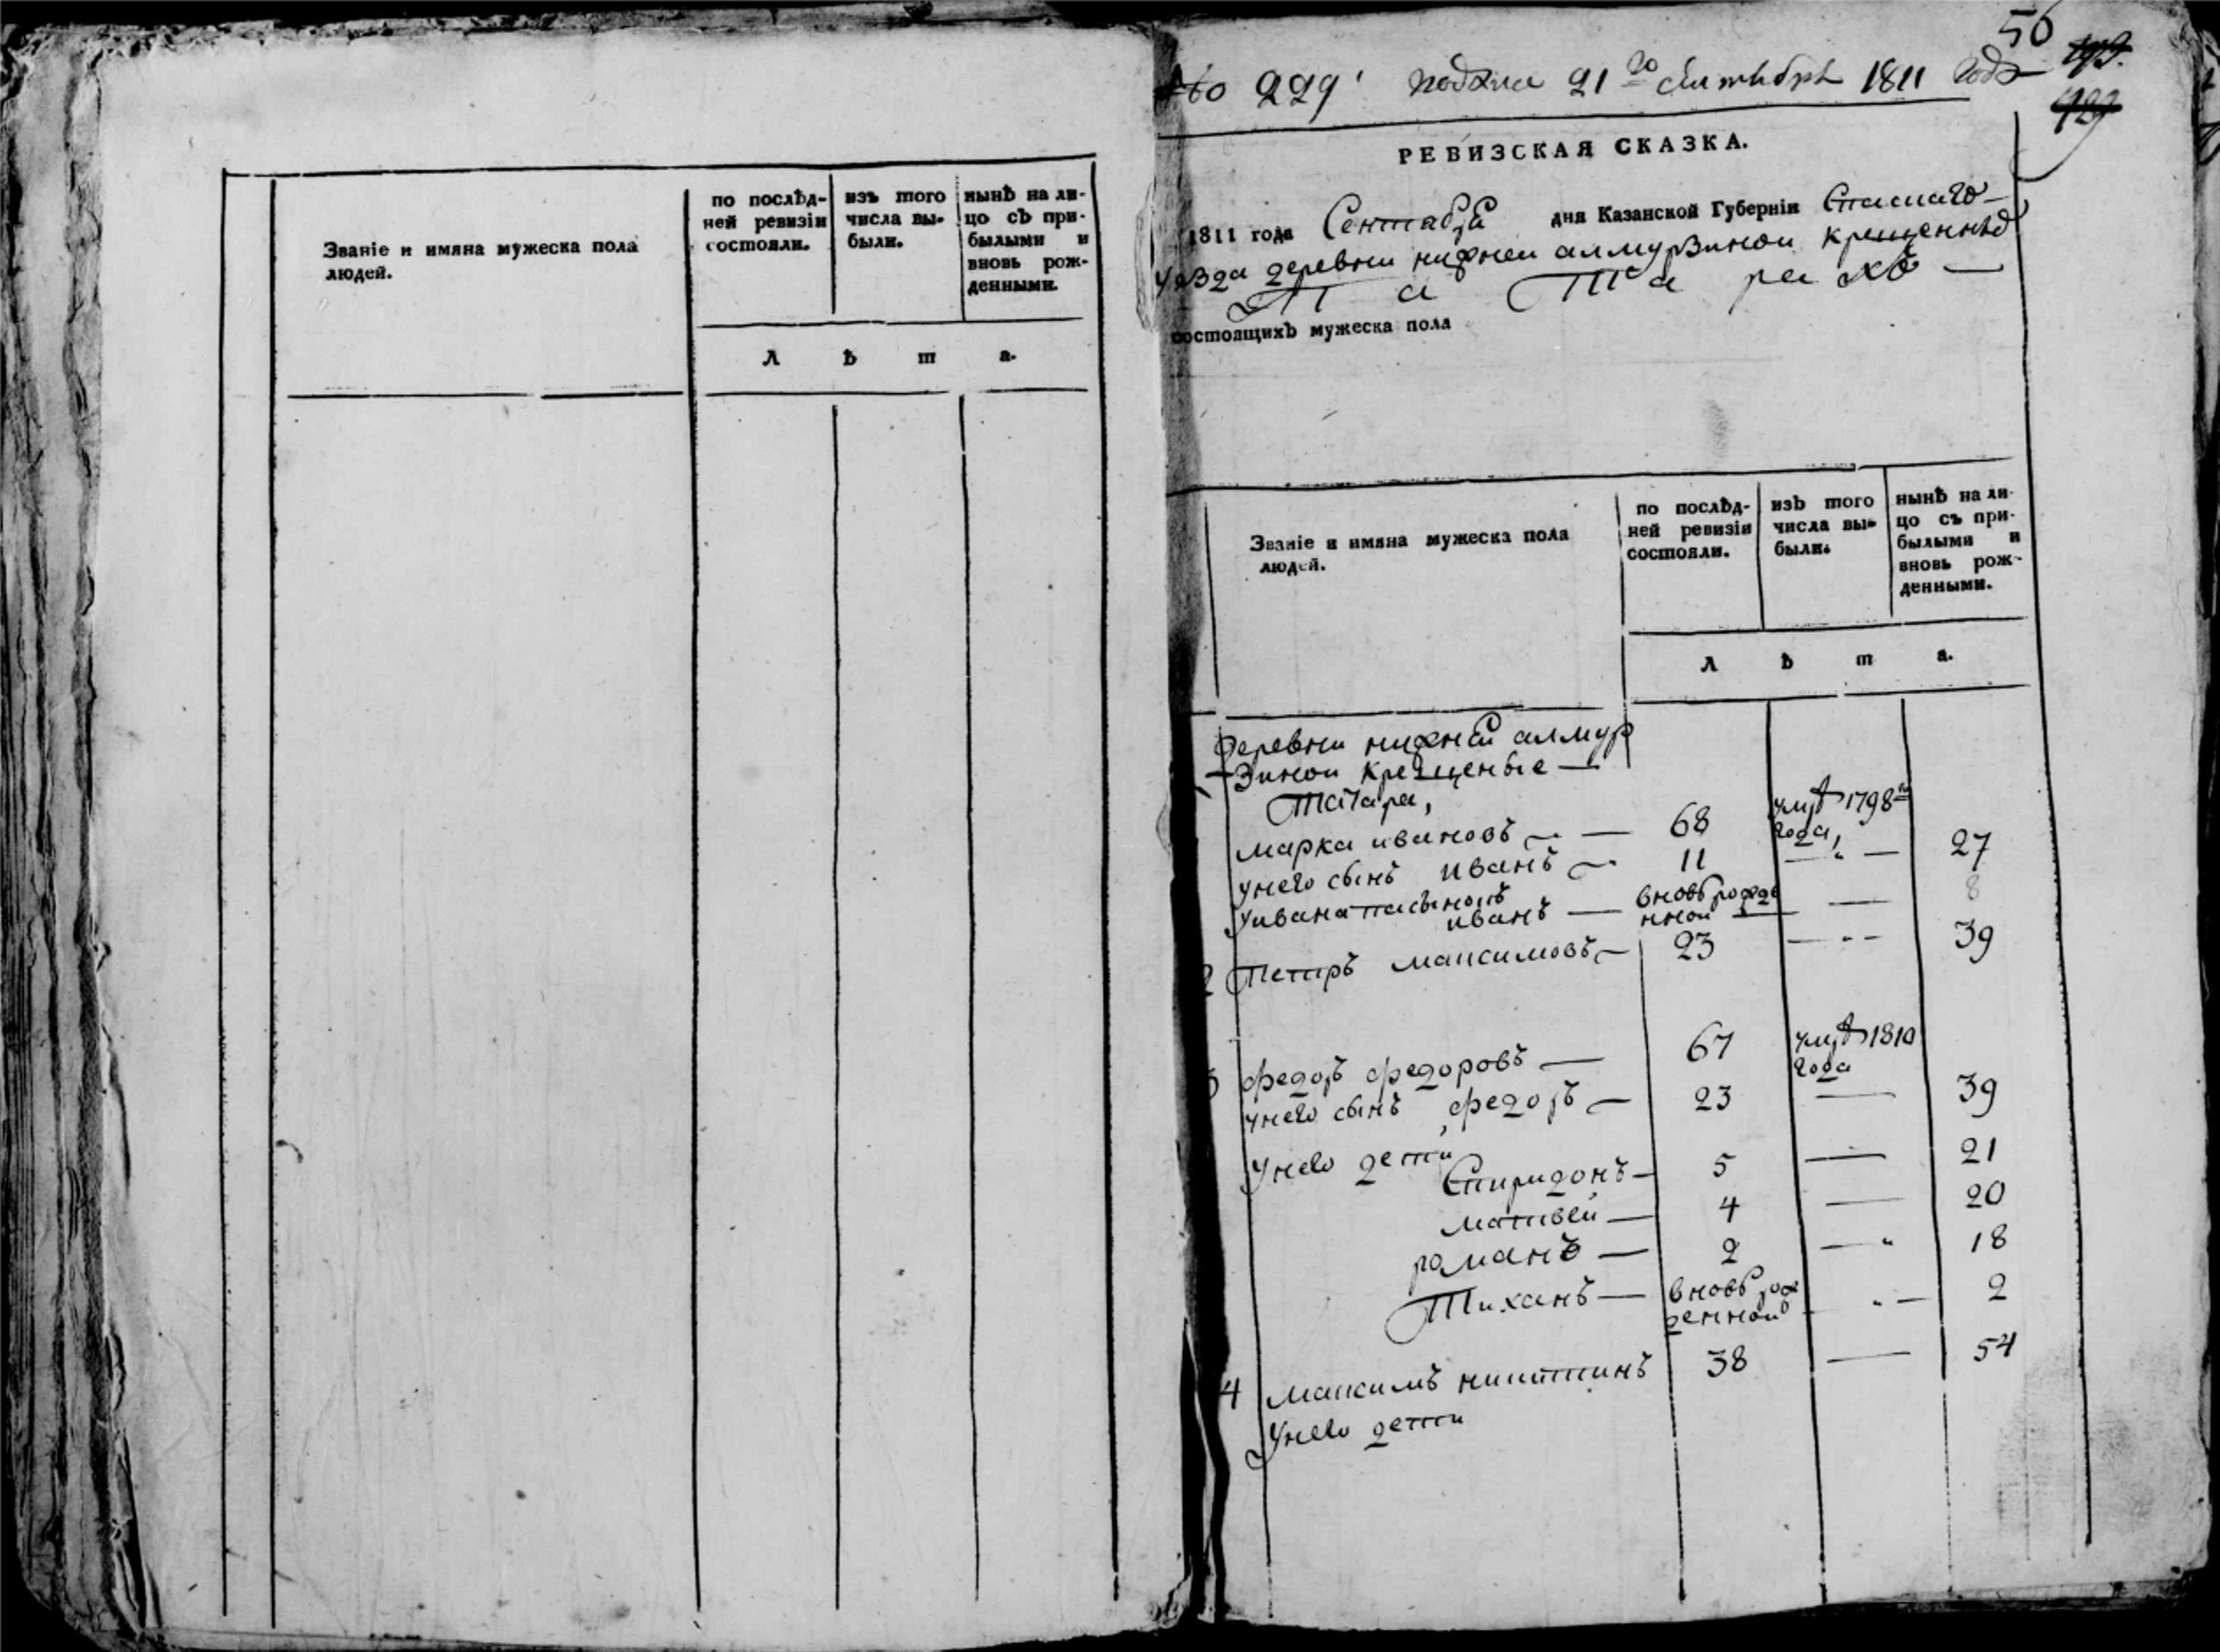 Званіе и имяна мужеска пола
людей.
по послѣд-
ней ревизіи
состояли.
изъ того
числа вы-
были.
нынѣ на ли-
цо съ при-
былыми и
вновь рож-
денными.
Л ѣ т а.
56
No 229 подана 21 го сентября 1811 года
РЕВИЗСКАЯ СКАЗКА.
1811 года Сентября дня Казанской Губерніи Спаскаго
уѣзда деревни нижнеи алмурзинои крещенныхъ
Татаръ
состоящихъ мужеска пола
Званіе и имяна мужеска пола
людей.
по послѣд-
ней ревизіи
состояли.
изъ того
числа вы-
были.
нынѣ на ли-
цо съ при-
былыми и
вновь рож-
денными.
Л ѣ т а.
деревни нижнеи алмур
зинои крещеные
татара,
марка ивановъ 68 умре 1798го года,
унего сынъ иванъ 11 27
уивана пасынокъ
иванъ вновь рожденнои 8
2 Петръ максимовъ 23 39
3 федоръ федоровъ 67 умре 1810 года
унего сынъ федоръ 23 39
унево дети
Спиридонъ 5 21
матвеи 4 20
романъ 2 18
Тиханъ вновь рожденнои 2
4 максимъ никитинъ 38 54
Унево дети